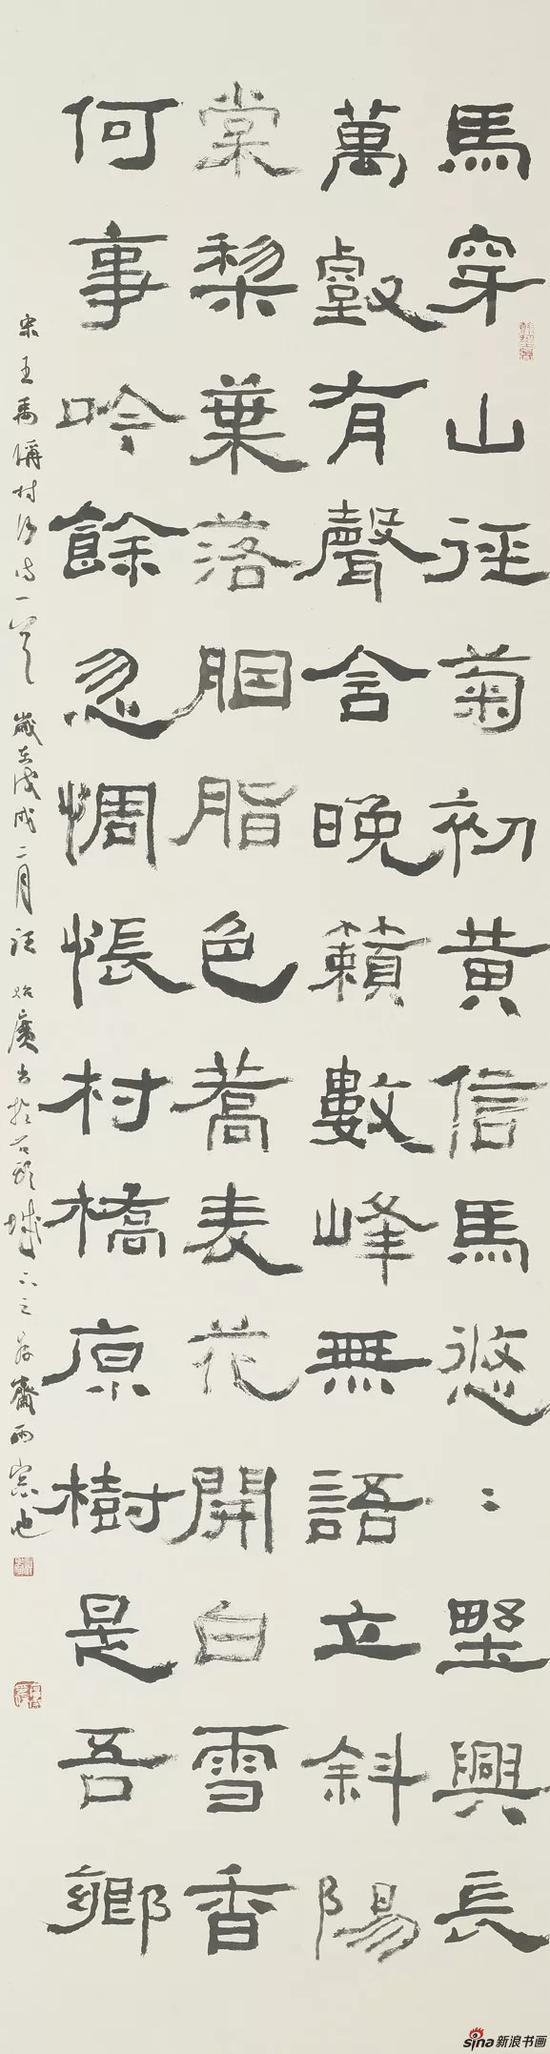 馬穿山徑菊初黃信馬悠〻野興長
萬壑有聲含晚籟數峰無語立斜陽
棠梨葉落胭脂色蕎麦花開白雪香
何事吟餘忽惆悵村橋原樹是吾鄉
宋王禹偁村行詩一首 歲在戊戌二月汪
sina新浪书画